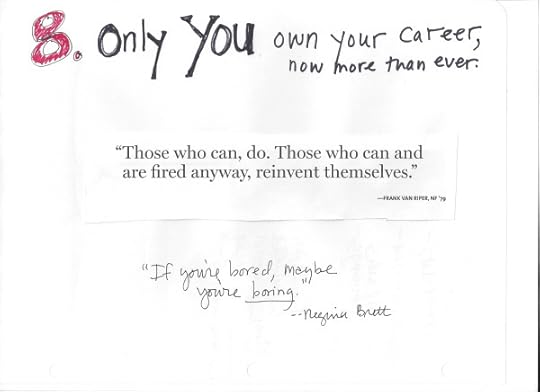 8. Only You own your career,
now more than ever.
“Those who can, do. Those who can and
are fired anyway, reinvent themselves.”
—FRANK VAN RIPER, NF ’79
“If you're bored, maybe
you're boring.”
--Regina Brett